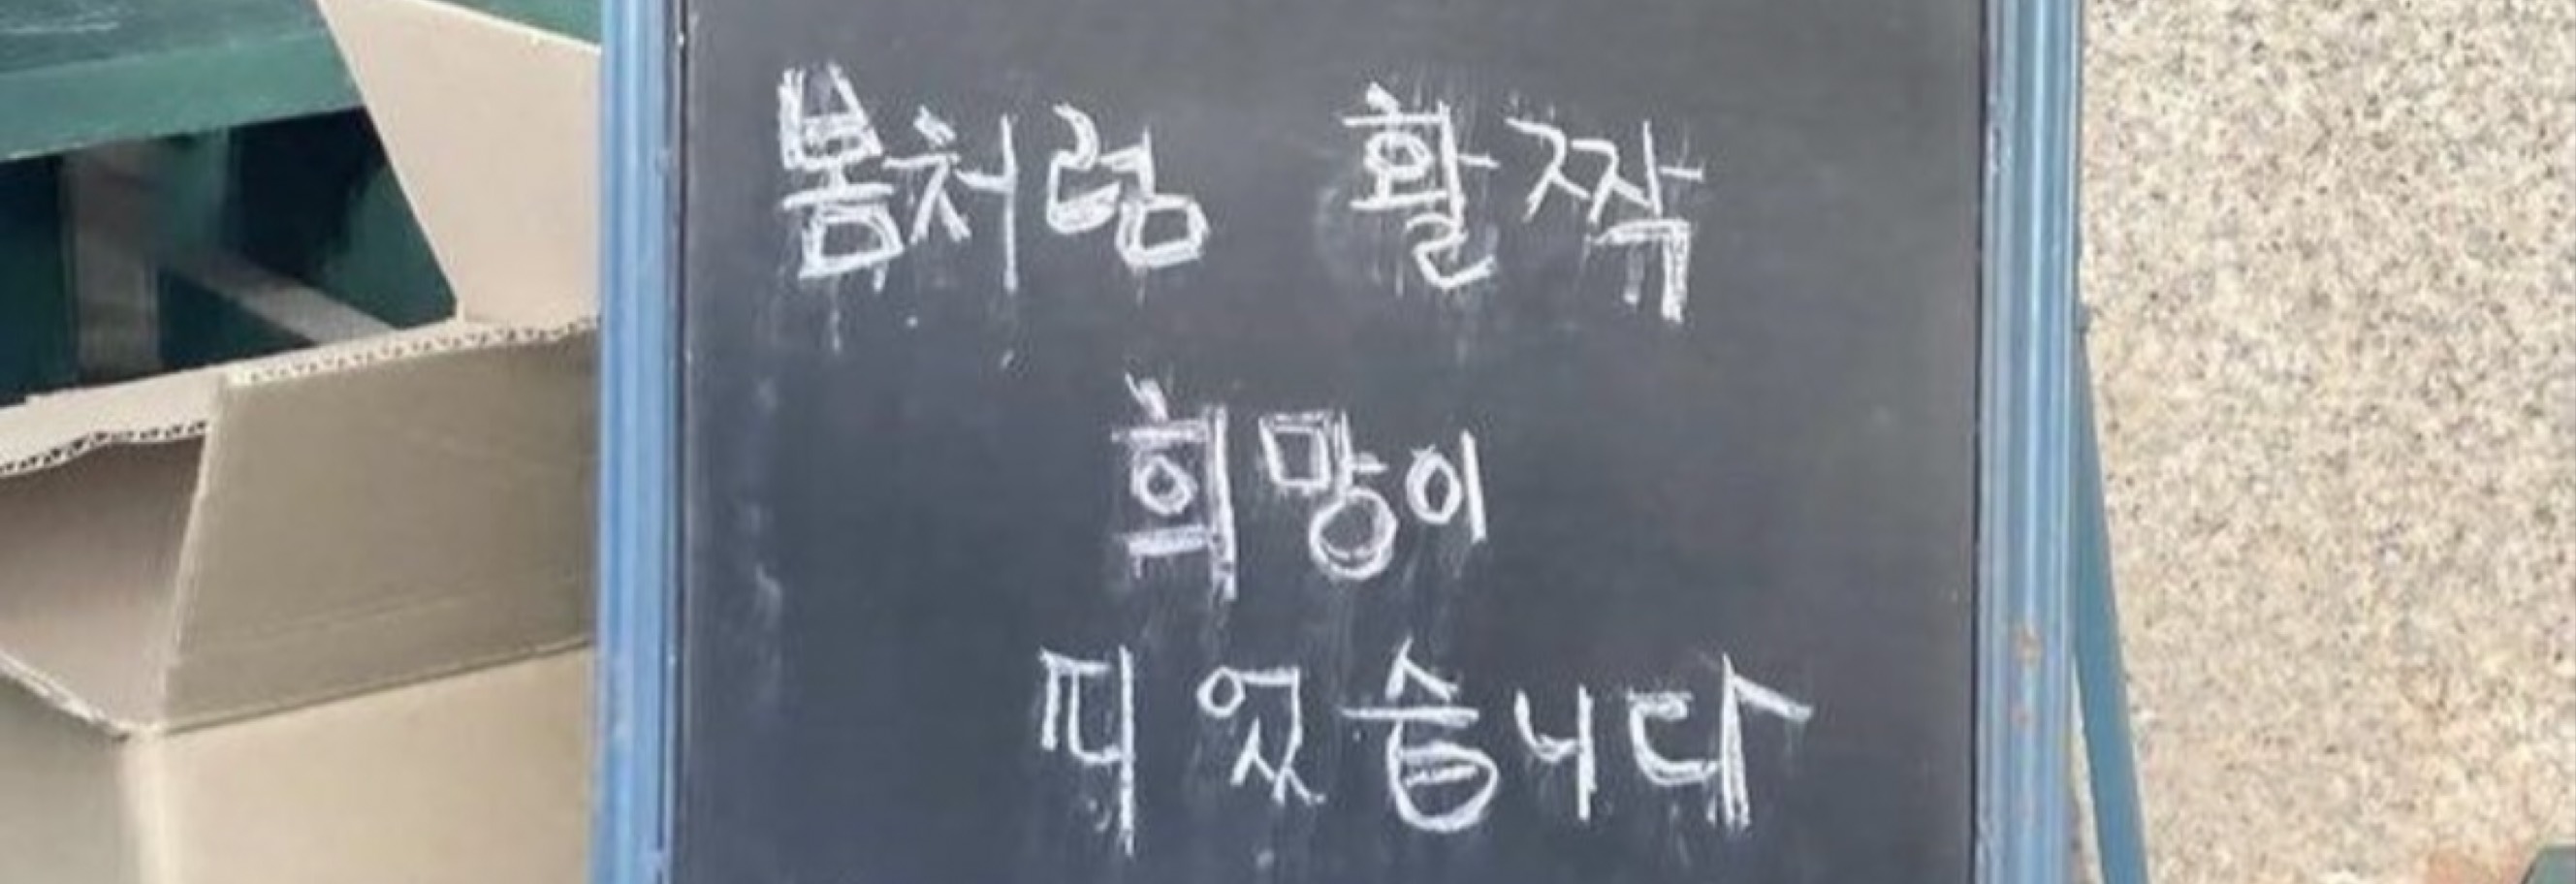 봄처럼 활짝
희망이
피었습니다